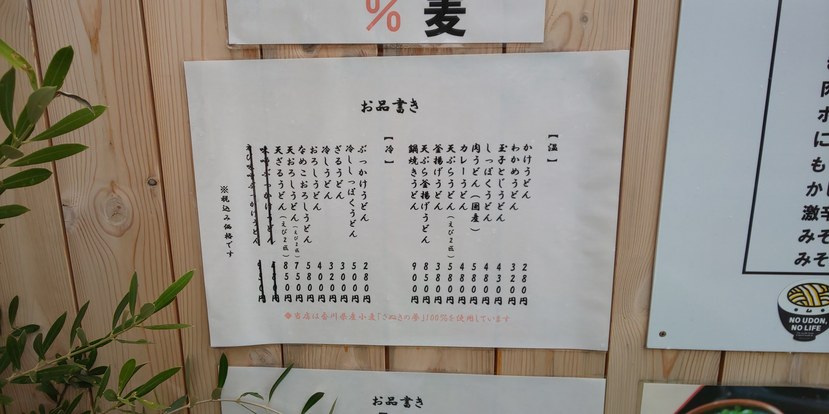 % 麦
お品書き
【温】
かけうどん 280円
わかめうどん 320円
玉子とじうどん 430円
しっぽくうどん 480円
肉うどん(国産)
カレーうどん 480円
天ぷらうどん(えび2匹)
釜揚げうどん 380円
天ぷら釜揚げうどん 850円
鍋焼きうどん 900円
【冷】
ぶっかけうどん 280円
冷しっぽくうどん 500円
ざるうどん 300円
冷しうどん 320円
おろしうどん 400円
なめこおろしうどん 580円
天おろしうどん(えび2匹) 750円
天ざるうどん(えび2匹) 850円
ぶっかけうどん
ぶっかけうどん
※税込み価格です
◆当店は香川県産小麦「さぬきの夢」100%を使用しています
お品書き
肉
ボ
に
も
かけ
激辛
みそ
みそ
NO UDON,
NO LIFE